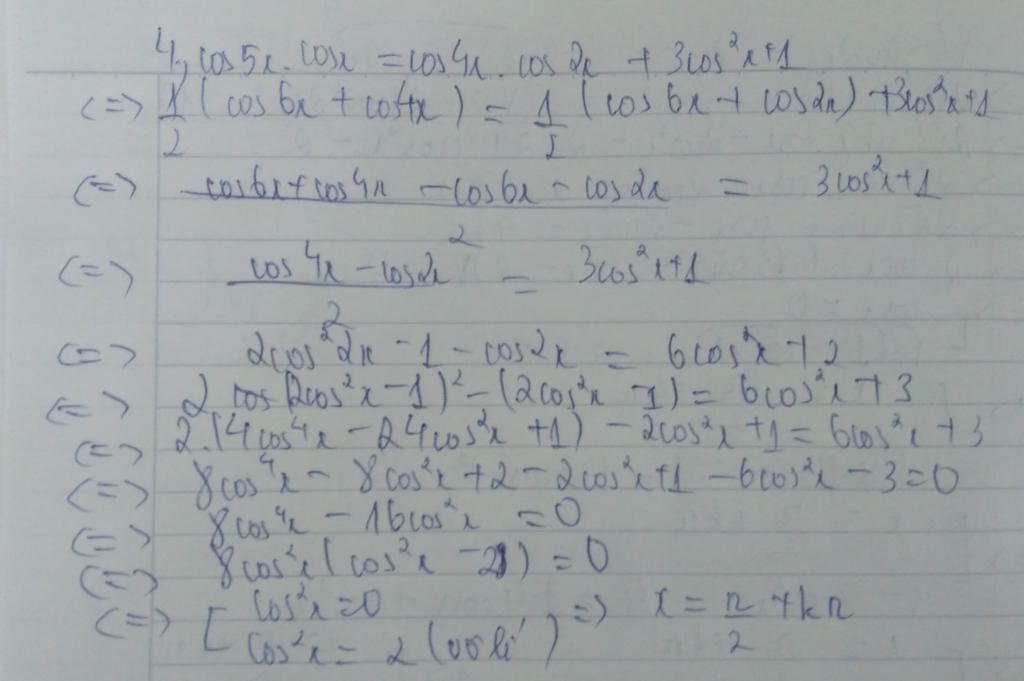 4, cos5x.cosx = cos4x.cos2x + 3cos²x+1
<=> 1/2 (cos6x + cos4x) = 1/2 (cos6x + cos2x) + 3cos²x+1
<=> (cos6x+cos4x - cos6x - cos2x)/2 = 3cos²x+1
<=> (cos4x - cos2x)/2 = 3cos²x+1
<=> 2cos²2x - 1 - cos2x = 6cos²x + 2
<=> 2 (2cos²x - 1)² - (2cos²x - 1) = 6cos²x + 3
<=> 2.(4cos⁴x - 4cos²x + 1) - 2cos²x + 1 = 6cos²x + 3
<=> 8cos⁴x - 8cos²x + 2 - 2cos²x + 1 - 6cos²x - 3 = 0
<=> 8cos⁴x - 16cos²x = 0
<=> 8cos²x (cos²x - 2) = 0
<=> [ cos²x = 0 => x = π/2 + kπ
cos²x = 2 (vô lí)